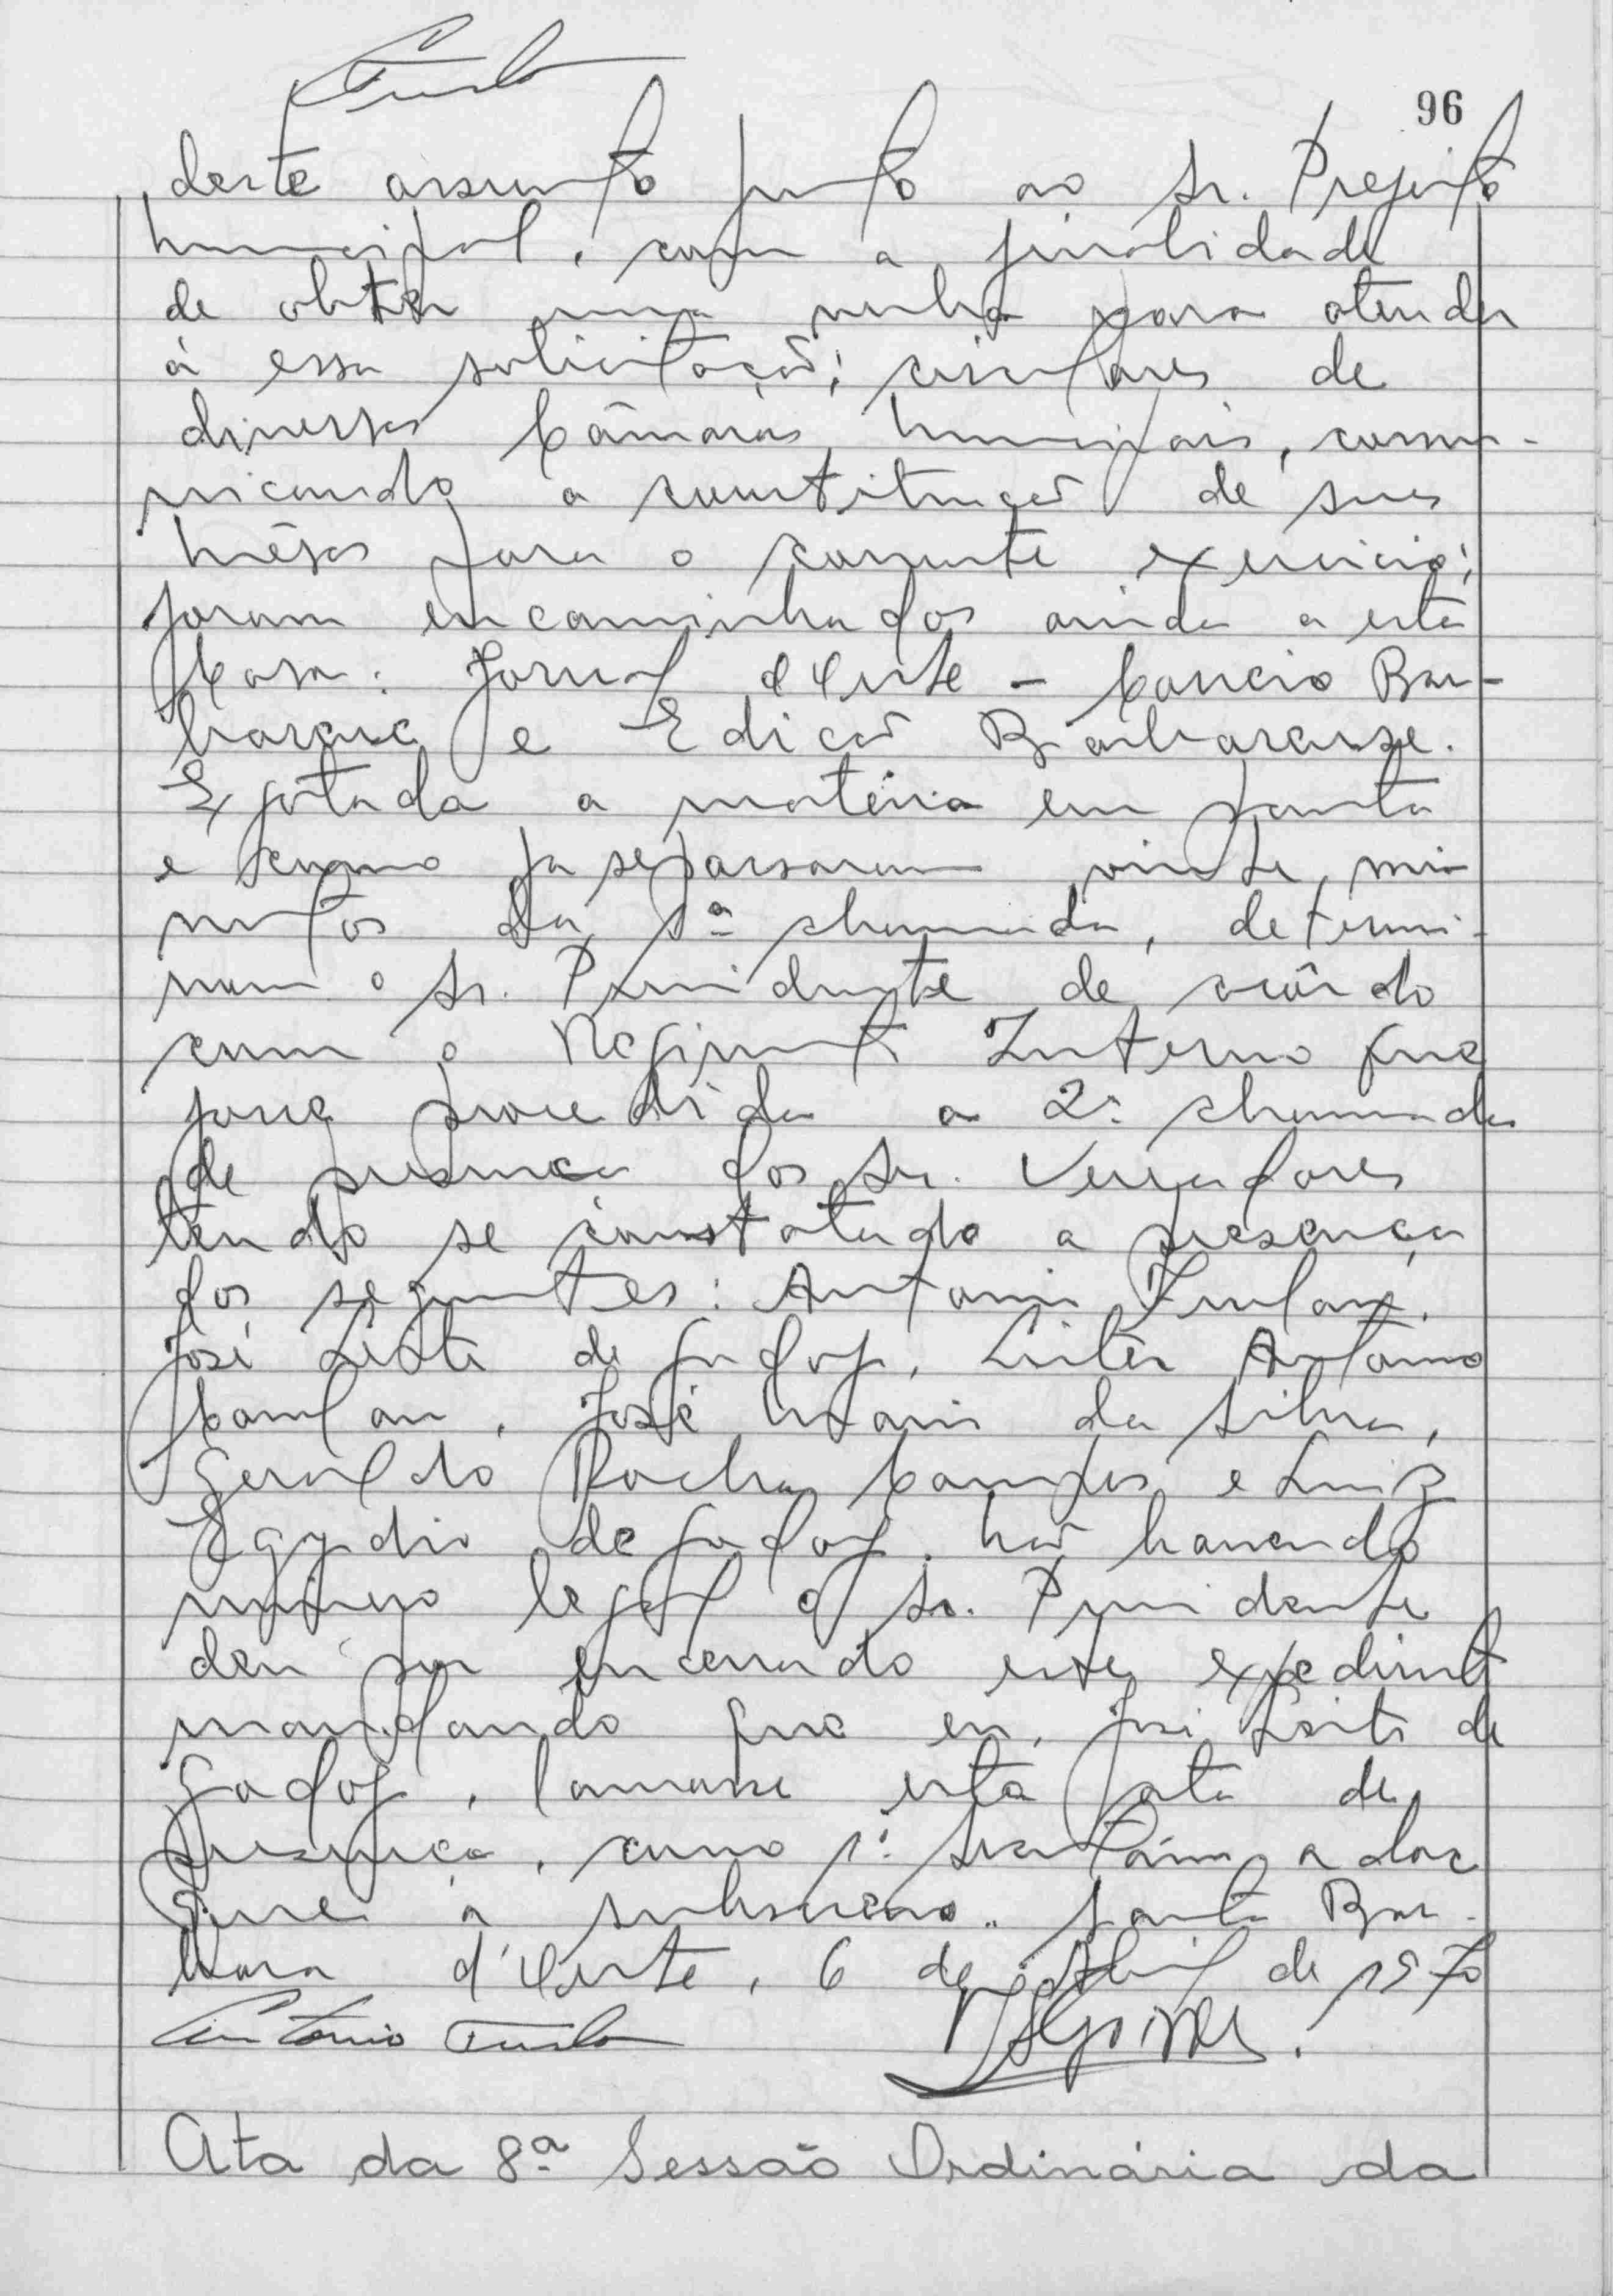 96
deste assunto junto ao Sr. Prefeito
Municipal, com a finalidade
de obter uma verba para atender
á essa solicitação; circulares de
diversas Câmaras Municipais, comu-
nicando a constituição de suas
Mêsas para o corrente exercicio;
foram encaminhados ainda a esta
Casa: Jornal d'Oeste - Correio Bar-
barense e Edição Barbarense.
Esgotada a matéria em pauta
e como ja se passaram vinte mi
nutos da 1ª chamada, determi-
nou o Sr. Presidente de acôrdo
com o Regimento Interno que
fosse procedida a 2ª chamada
de presença dos Sr. Vereadores
tendo se constatado a presença
dos seguintes: Antonio Furlan,
José Leite de Godoy, Antonio
José Maria da Silva,
Geraldo Rocha Campos e Luiz
Egydio de Godoy. Não havendo
número legal o Sr. Presidente
deu por encerrado este expediente
mandando que eu, José Leite de
Godoy, lavrasse esta ata de
presença, como 1º Secretário a
que a subscrevo.. Santa Bar-
bara d'Oeste, 6 de Abril de 1970
Antonio Furlan
Ata da 8ª Sessão Ordinária da